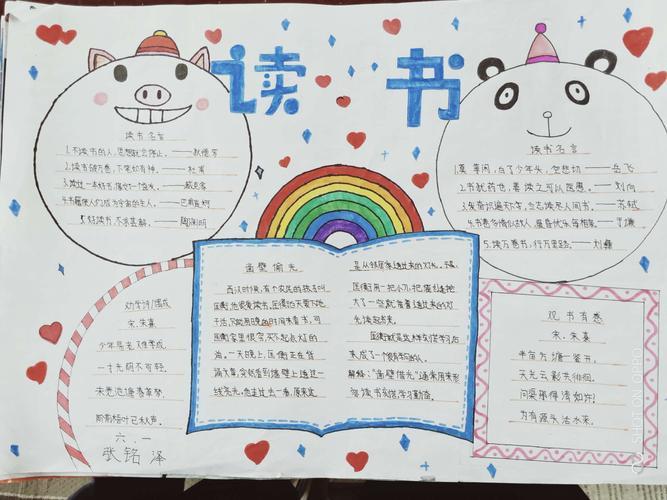 读书
读书名言
1.不读书的人,思想就会停止。——狄德罗
2.读书破万卷,下笔如有神。——杜甫
3.读过一本好书,像交了益友。——臧克家
4.书籍使人们成为宇宙的主人。——巴甫连柯
5.好读书,不求甚解。——陶渊明
读书名言
1.莫等闲,白了少年头,空悲切——岳飞
2.书犹药也,善读之可以医愚。——刘向
3.发奋识遍天下字,立志读尽人间书。——苏轼
4.书卷多情似故人,晨昏忧乐每相亲。——于谦
5.读万卷书,行万里路。——刘彝
凿壁偷光
西汉时候,有个农民的孩子,叫
匡衡。他很爱读书。匡衡白天要下地
干活,只能用晚
时间来看书。可
匡衡家里很穷,买不起点灯的
油。一天晚上,匡衡正在背
诵文章,突然看到墙壁上透过一
线亮光,他走过去一看,原来这
是从邻居家透过来的灯光。于是,
匡衡用一把小刀,把墙缝挖
大了一些,就借着透过来的灯
光读起书来。
匡衡就是这样刻苦学习,后
来成了一个很有学问的人。
解释:“凿壁借光”通常用来形
容读书刻苦,学习勤奋。
劝学诗/偶成
宋.朱熹
少年易老学难成,
一寸光阴不可轻。
未觉池塘春草梦,
阶前梧叶已秋声。
六.一
张铭泽
观书有感
宋.朱熹
半亩方塘一鉴开,
天光云影共徘徊。
问渠那得清如许?
为有源头活水来。
SHOT ON OPPO